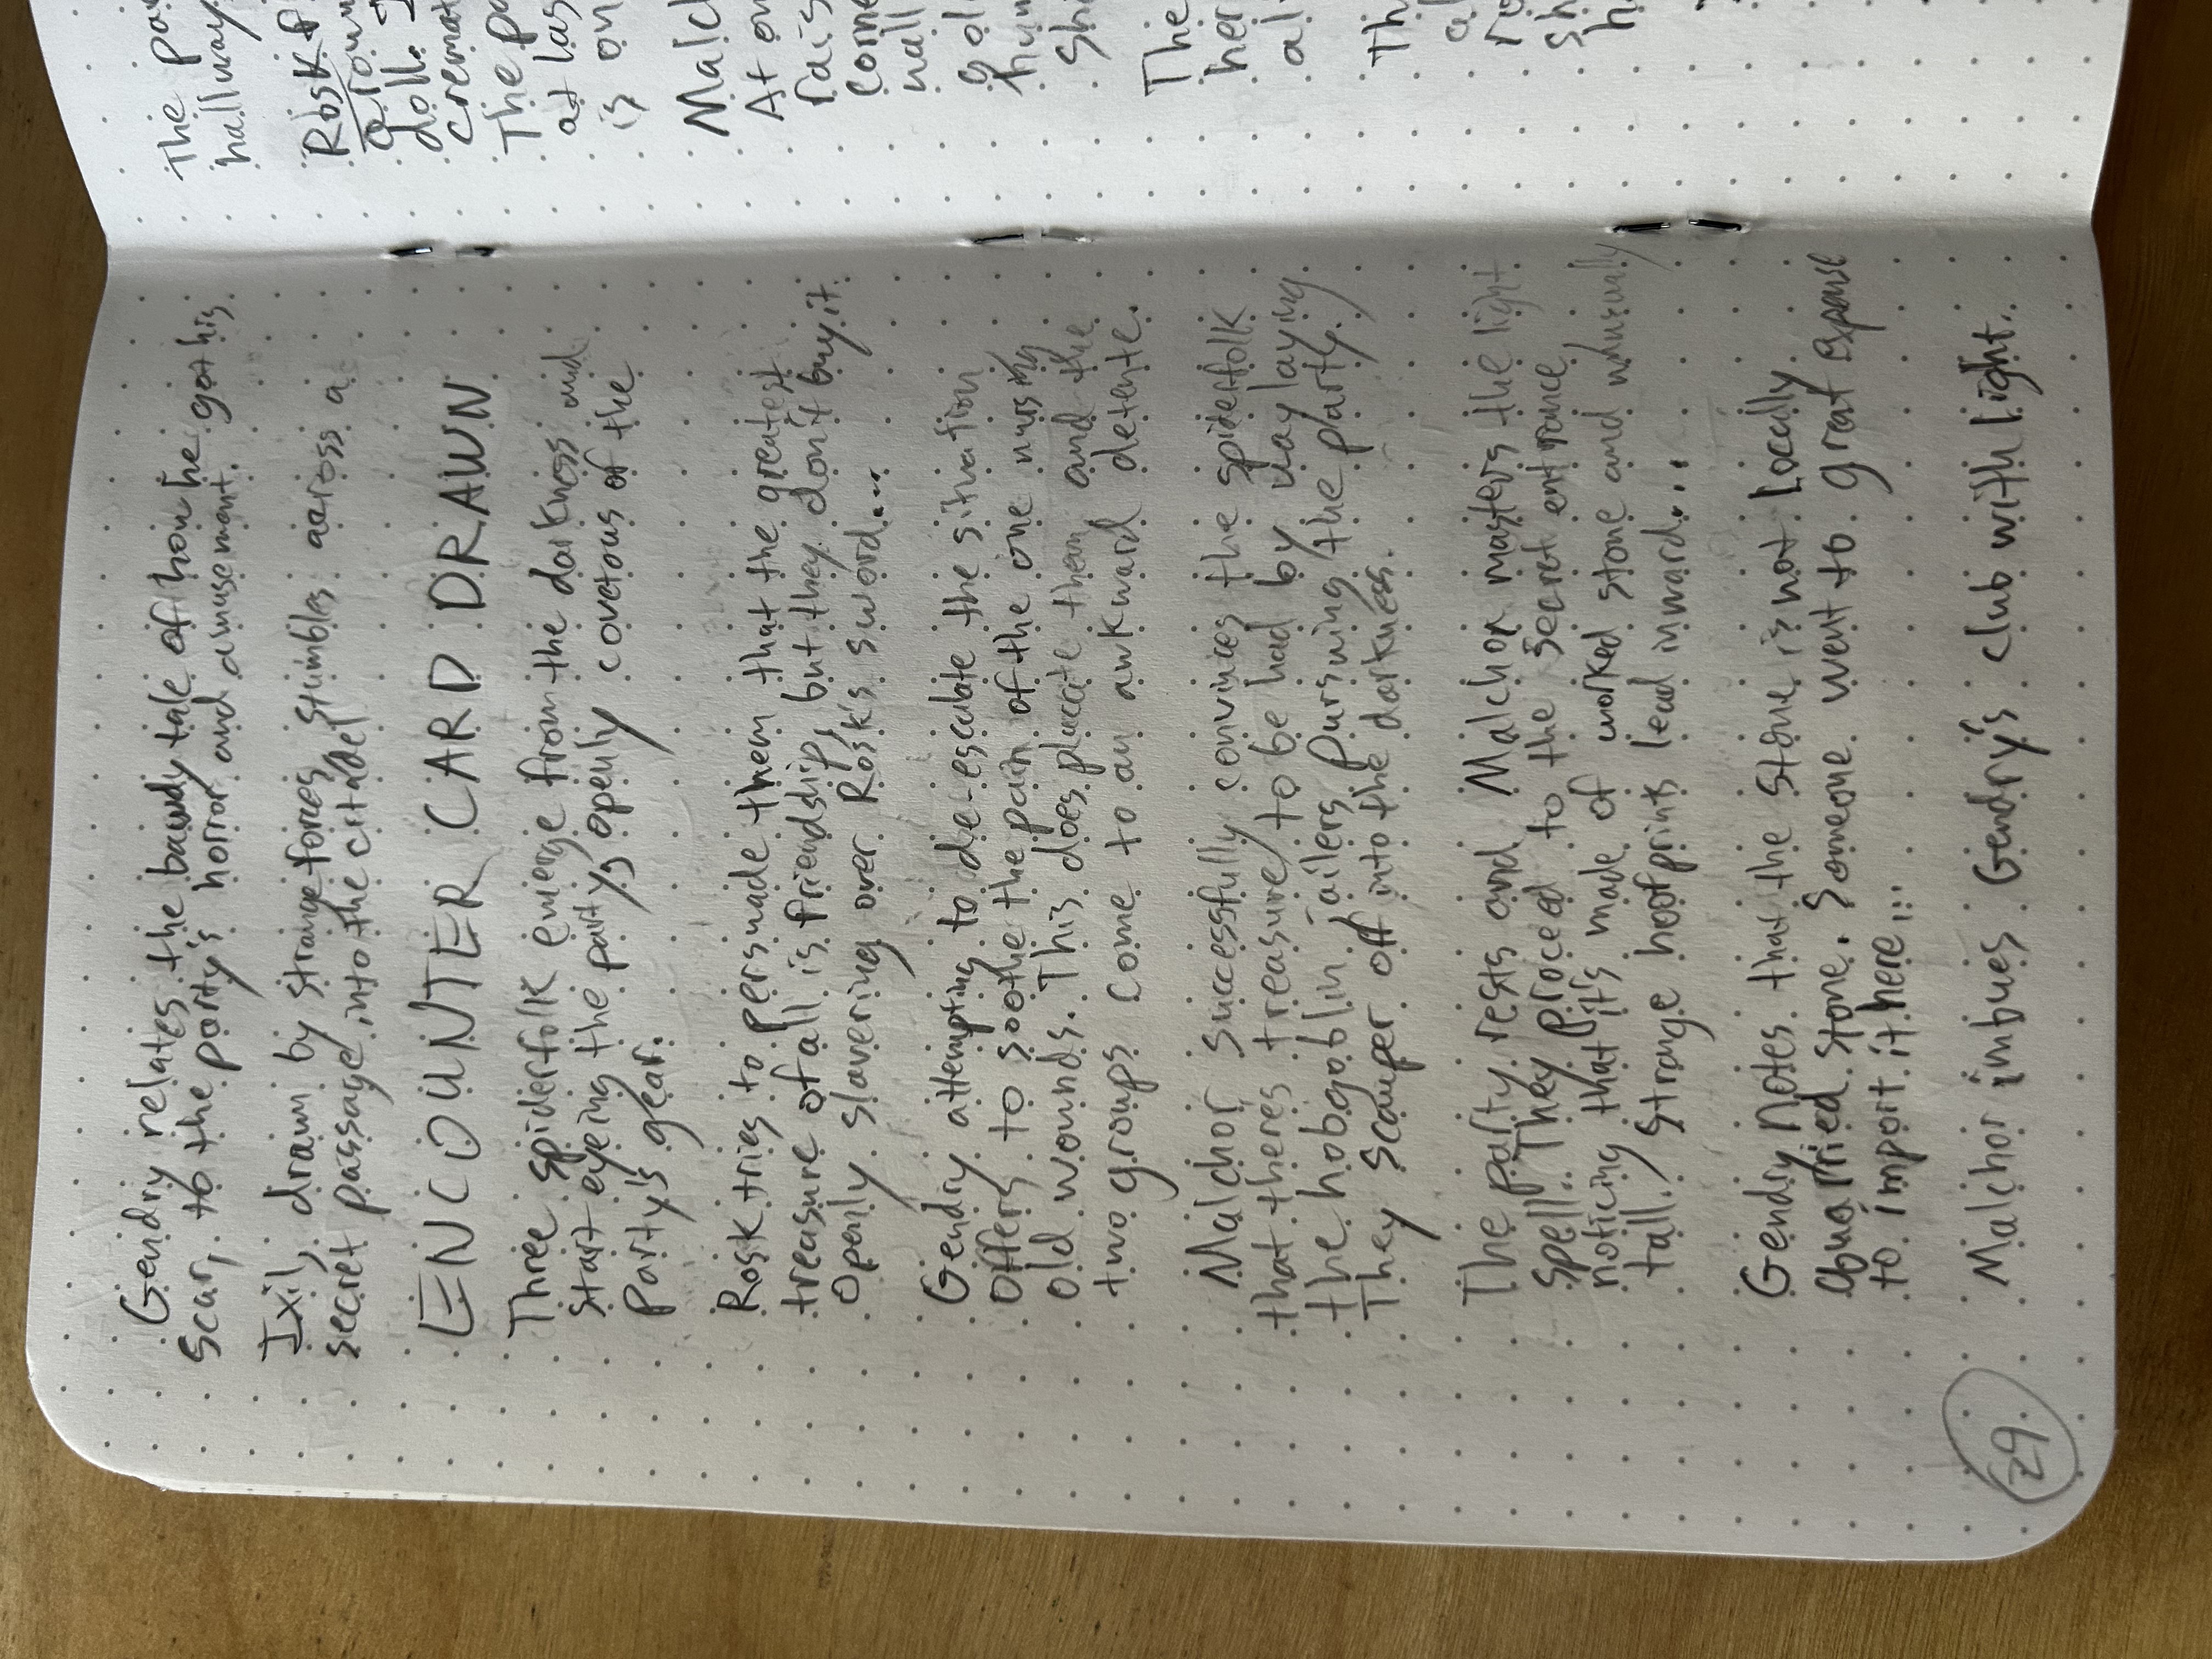 Gendry relates the bawdy tale of how he got his
scar, to the party's horror and amusement.
Ixil, drawn by strange forces, stumbles across a
secret passage into the citadel
ENCOUNTER CARD DRAWN
Three spiderfolk emerge from the darkness and
start eyeing the party's openly covetous of the
party's gear.
Rosk tries to persuade them that the greatest
treasure of all is friendship, but they don't buy it.
Openly slavering over Rosk's sword...
Gendry attempting to de-esculate the situation
offers to soothe the pain of the one nursing
old wounds. This does placate them and the
two groups come to an awkward detente.
Malchor successfully convinces the spiderfolk
that theres treasure to be had by waylaying
the hobgoblin jailers pursuing the party.
They scamper off into the darkness.
The party rests and Malchor masters the light
spell. They proceed to the secret entrance
noticing that it's made of worked stone and unusually
tall. Strange hoofprints lead inward...
Gendry notes that the stone is not locally
quarried stone. Someone went to great expense
to import it here...
Malchor imbues Gendry's club with light..
29
The pa
hallway
Rosk f
aroun
doll. I
cremat
The pa
at las
is on
Malc
At on
rais
corne
wall
gol
hum
sh
The
her
al
Th
a
ro
sh
h